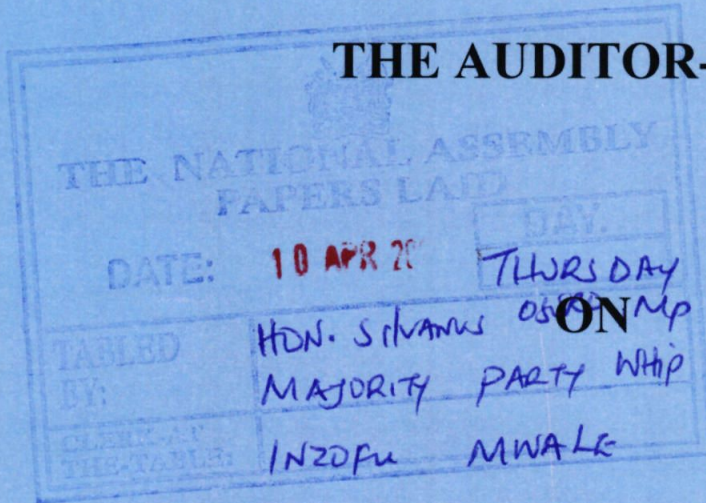 THE AUDITOR-
THE NATIONAL ASSEMBLY
PAPERS LAID
DAY.
DATE: 10 APR 20 THURSDAY
ON
TABLED BY: HON. SILVANUS MP
MAJORITY PARTY WHIP
CLERK-AT THE-TABLE: INZOFU MWALE